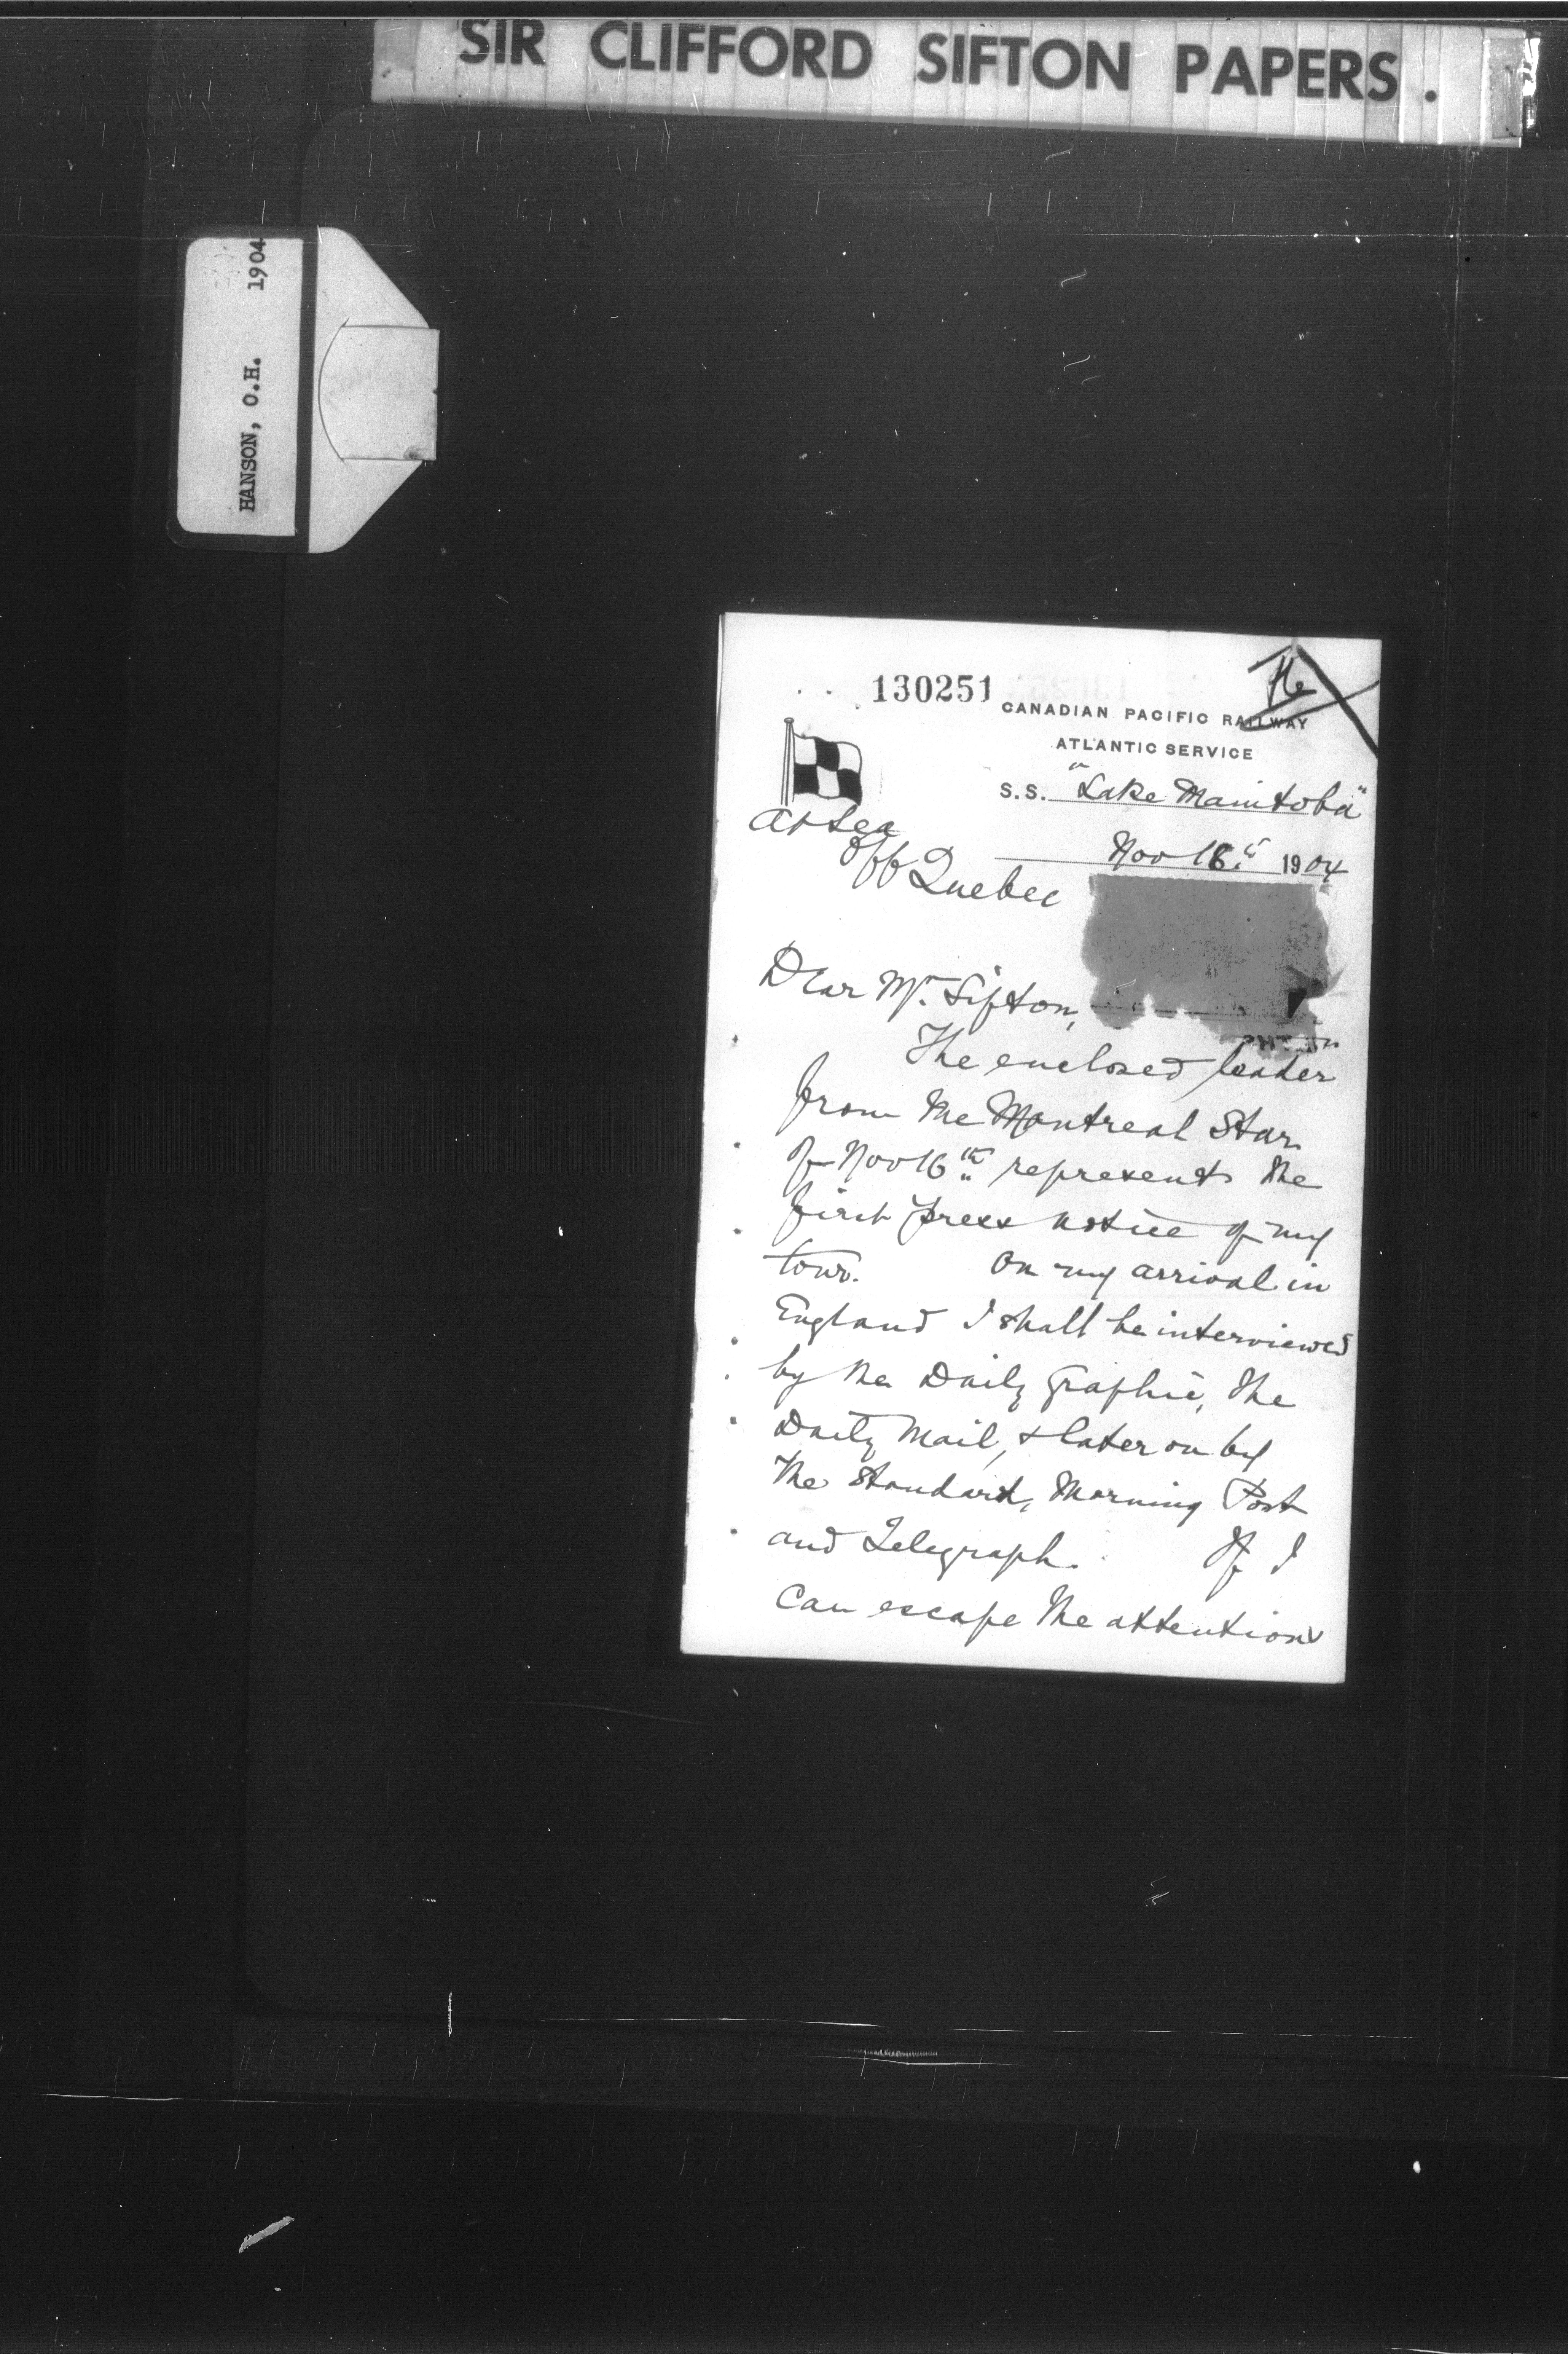 SIR CLIFFORD SIFTON PAPERS.
HANSON, O.H. 1904
130251
CANADIAN PACIFIC RAILWAY
ATLANTIC SERVICE
S.S. "Lake Manitoba"
At Sea
off Quebec
Nov 18th 1904
Dear Mr. Sifton,
The enclosed leader
from the Montreal Star
of Nov 16th represents the
first press notice of my
tour. On my arrival in
England I shall be interviewed
by the Daily Graphic, the
Daily Mail, & later on by
the Standard, Morning Post
and Telegraph. If I
can escape the attentions